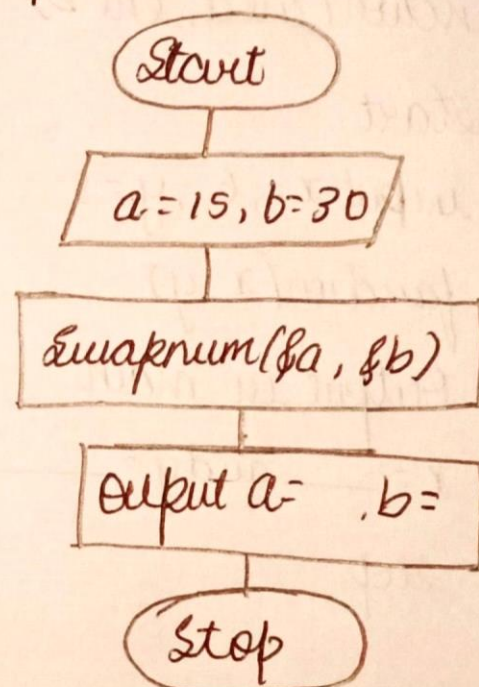 Start
a=15, b=30
Swapnum(&a, &b)
Output a= , b=
Stop